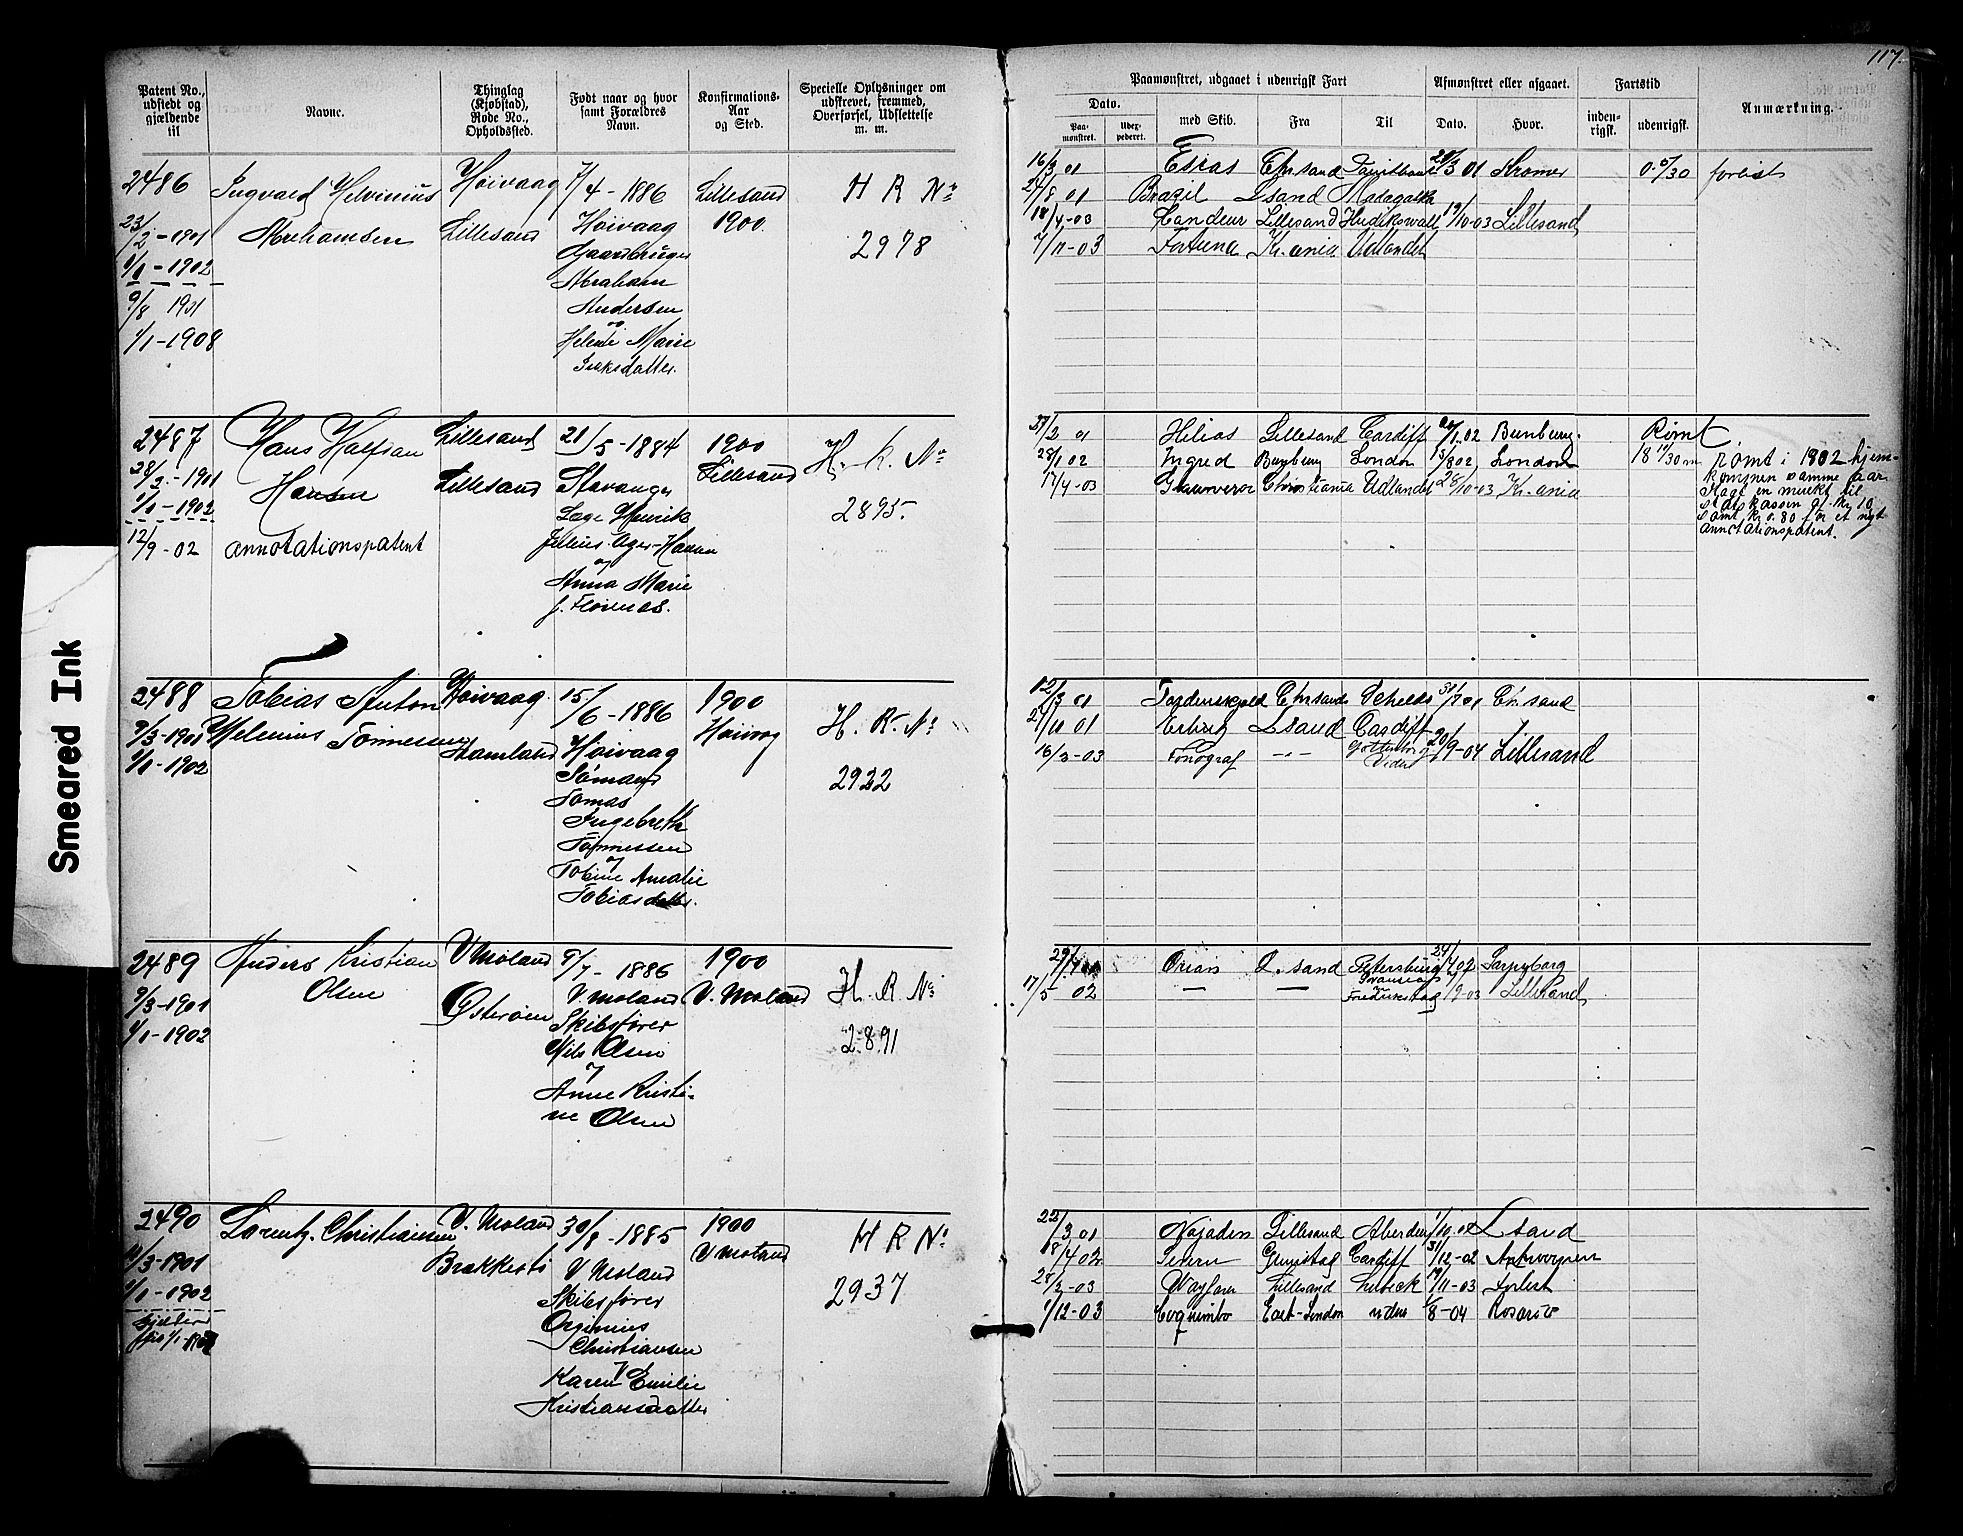 117.
Patent No., udstedt og gjældende til
Navne.
Thinglag (Kjøbstad), Rode No., Opholdssted.
Født naar og hvor samt Forældres Navn.
Konfirmations-Aar og Sted.
Specielle Oplysninger om udskrevet, fremmed, Overførsel, Udslettelse m. m.
Paamønstret, udgaaet i udenrigsk Fart
Afmønstret eller afgaaet.
Fartstid
Anmærkning.
Dato.
Paa-mønstret.
Uder-pederet.
med Skib.
Fra
Til
Dato.
Hvor.
inden-rigsk.
udenrigsk.
2486 Ingvald Helvinius Høivaag 7/4-1886 Lillesand H R No
23/2-1901 Abrahamsen Lillesand Høivaag 1900. 2978
1/1-1902 Gaardbruger
9/8 1901 Abraham
1/1-1908 Andersen
og
Helene Marie
Isaksdatter.
16/3 01 Esras Chr.sand 29/3 01 0-0/30 forlist
24/8 01 Brazil Lsand
18/4-03 Lillesand Hudikswall 19/10-03 Lillesand
7/11-03 Fortuna Kr.ania Udlandet
2487 Hans Halfdan Lillesand 21/5-1884 1900 H. R. No
28/2-1901 Hansen Lillesand Stavanger Lillesand 2895.
1/1-1902 Læge Henrik
12/9-02 annotationspatent Julius Ager-Hansen
og
Anna Marie
f. Florenæs.
2 01 Helios Lillesand Cardiff 1 02 Bunbury. Rømt
28/1 02 Ingred Bunbury London 13/8 02, London 18 11/30 m rømt i 1902 hjem-
17/4-03 Christiania Udlandet 28/10-03 Kr.ania kommen samme aar.
en mulkt til
Statskassen af Kr 10
samt kr 0.80 for et nyt
annotationspatent.
2488 Tobias Anton Høivaag. 15/6-1886 1900 H. R. No
9/3-1901 Helenius Tønnessen Hamland Høivaag Høivaag 2932
1/1-1902 Sømand
Tomas
Ingebreth
Tønnessen
og
Tobine Amalie
Tobiasdatter.
12/3 01 Tordenskjold Chrsand 31/7 01 Chr.sand
21/10 01 Erling Lsand Cardiff
16/3-03 Fonograf -"- Gøtteborg 20/9-04 Lillesand
Videre
2489 Anders Kristian V Moland 9/7-1886 1900 H. R. No
9/3-1901 Olsen Østerøen V Moland V. Moland 2891
1/1-1902 Skibsfører
Nils Olsen
og
Anne Kristi-
ne Olsen
29/ Orion L.sand Petersburg 24/ 02 Sarpsborg
17/5 02 — — Fredrikstad 9-03 Lillesand
2490 Lorentz. Christiansen V. Moland 30/8-1885 1900 H R No
11/3-1901 Brækkestø V Moland V Moland 2937
1/1-1902 Skibsfører
gjelder Orginius
Christiansen
og
Karen Emilie
Kristiansdatter
22/3 01 Najaden Lillesand Aberdeen 1/10.02 Lsand
18/4 02 Severn Grimstad Cardiff 31/12-02 Antwerpen
28/2-03 Wayfarer Lillesand Lubeck 19/11-03 forlist
1/12-03 Coquimbo East-London videre /8-04 Rosario
Smeared Ink